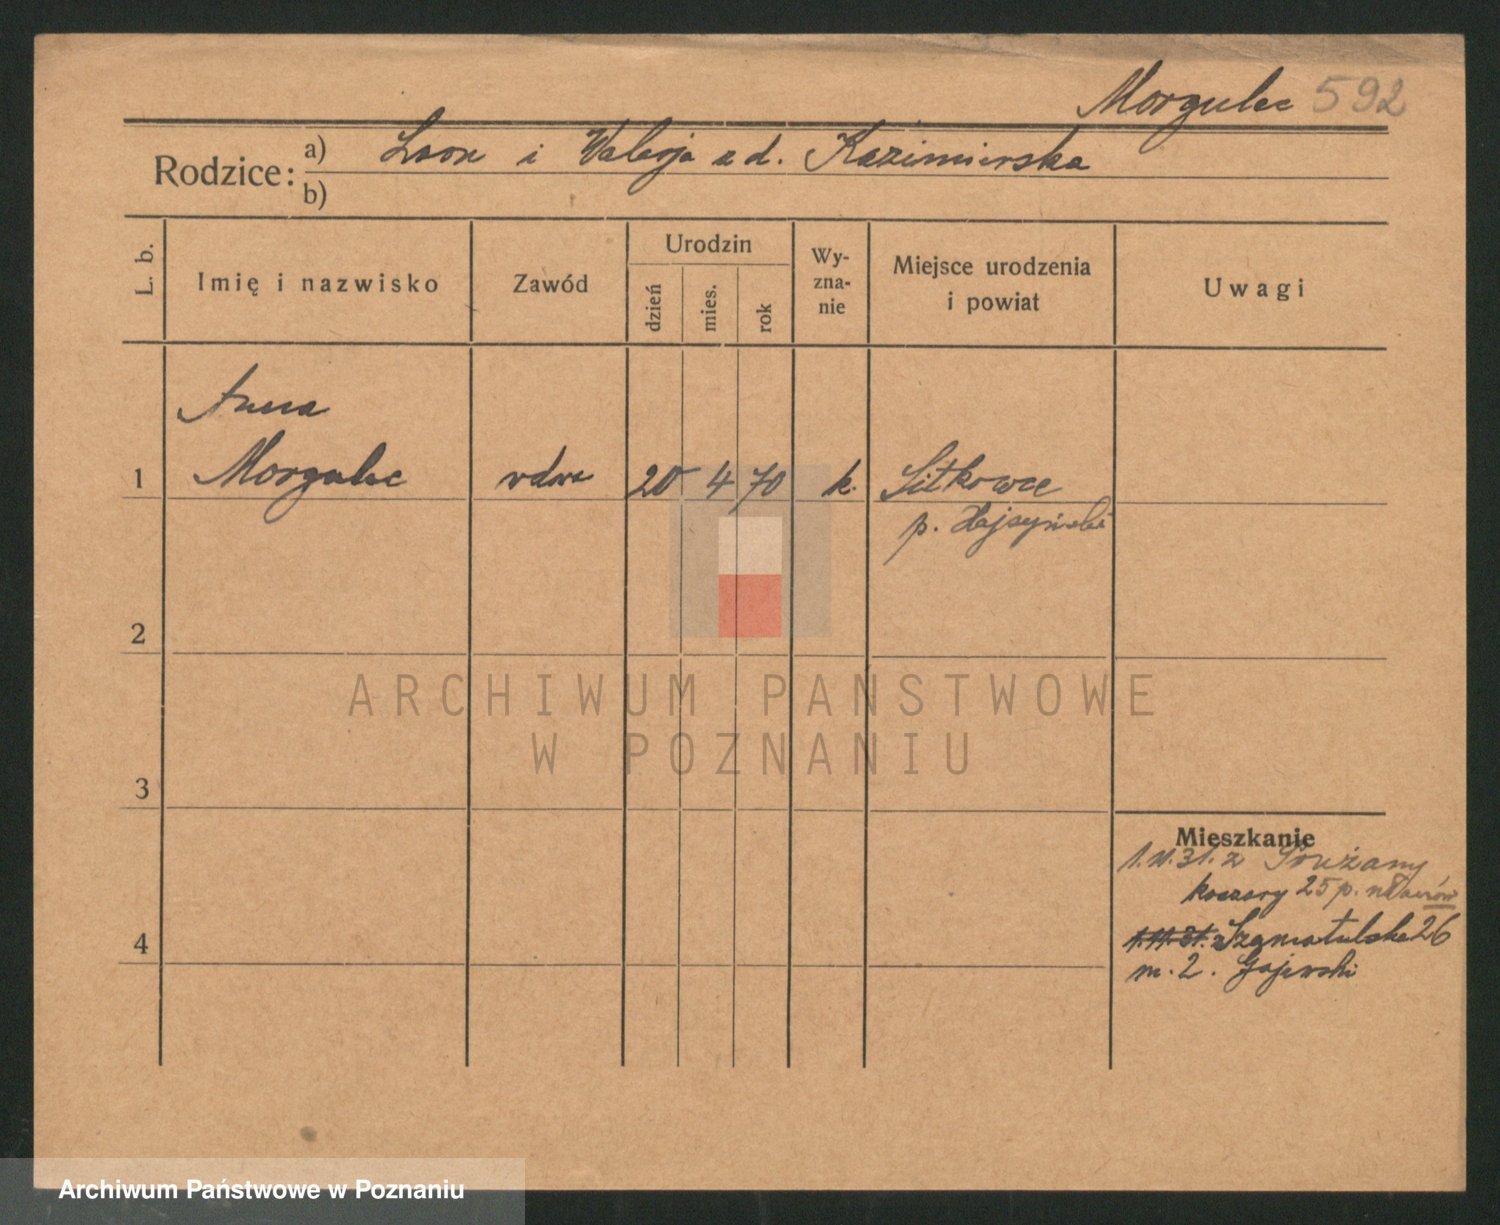 Morgulec 592
Rodzice: a) Leon i Walerja z d. Kazimierska
b)
L. b.
Imię i nazwisko
Zawód
Urodzin
dzień
mies.
rok
Wy-
zna-
nie
Miejsce urodzenia
i powiat
Uwagi
Anna
1 Morgulec wdwa 20 4 70 k. Sitkowce
p. Hajsyński
2
3
4
Mieszkanie
1.11.31. z Prużany
koszary 25 p. ułanów
1.11.31. z Szamotulska 26
m. 2. Gajewski
ARCHIWUM PAŃSTWOWE
W POZNANIU
Archiwum Państwowe w Poznaniu